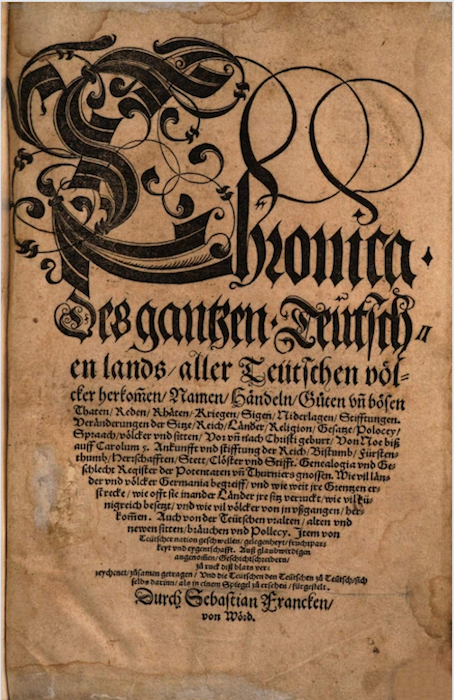 Chronica.
Des gantzen Teutsch⸗
en lands/ aller Teütschen völ⸗
cker herkom̃en/ Namen/ Händeln/ Güten vñ bösen
Thaten/ Reden/ Rhäten/ Kriegen/ Sigen/ Niderlagen/ Stifftungen.
Veränderungen der Sitze/ Reich/ Länder/ Religion/ Gesatze/ Policey/
Spraach/ völcker vnd sitten/ Vor vñ nach Christi geburt/ Von Noe biß
auff Carolum 5. Ankunfft vnd stifftung der Reich/ Bistumb/ Fürsten⸗
thumb/ Herrschafften/ Stett/ Clöster vnd Stifft. Genealogia vnd Ge⸗
schlecht Register der Potentaten vñ Thurniers gnossen. Wie vil län⸗
der vnd völcker Germania begreiff/ vnd wie weit jre Grentzen er⸗
strecke/ wie offt sie in ander Länder jre sitz verruckt/ wie vil Kü⸗
nigreich besetzt/ vnd wie vil völcker von jn vßgangen/ her⸗
kom̃en. Auch von der Teütschen vralten/ alten vnd
newen sitten/ bräuchen vnd Pollecy. Item von
Teütscher nation gelegenheyt/ fruchtpar⸗
keyt vnd eygentschafft. Auß glaubwirdigen
angenom̃en/ Geschichtschreibern/
zů ruck diß blats ver⸗
zeychnet/ zůsamen getragen/ Vnd die Teutschen den Teütschen zů Teütsch/ sich
selbs darinn/ als in einem Spiegel zů ersehen/ fürgestelt.
Durch Sebastian Francken/
von Wörd.